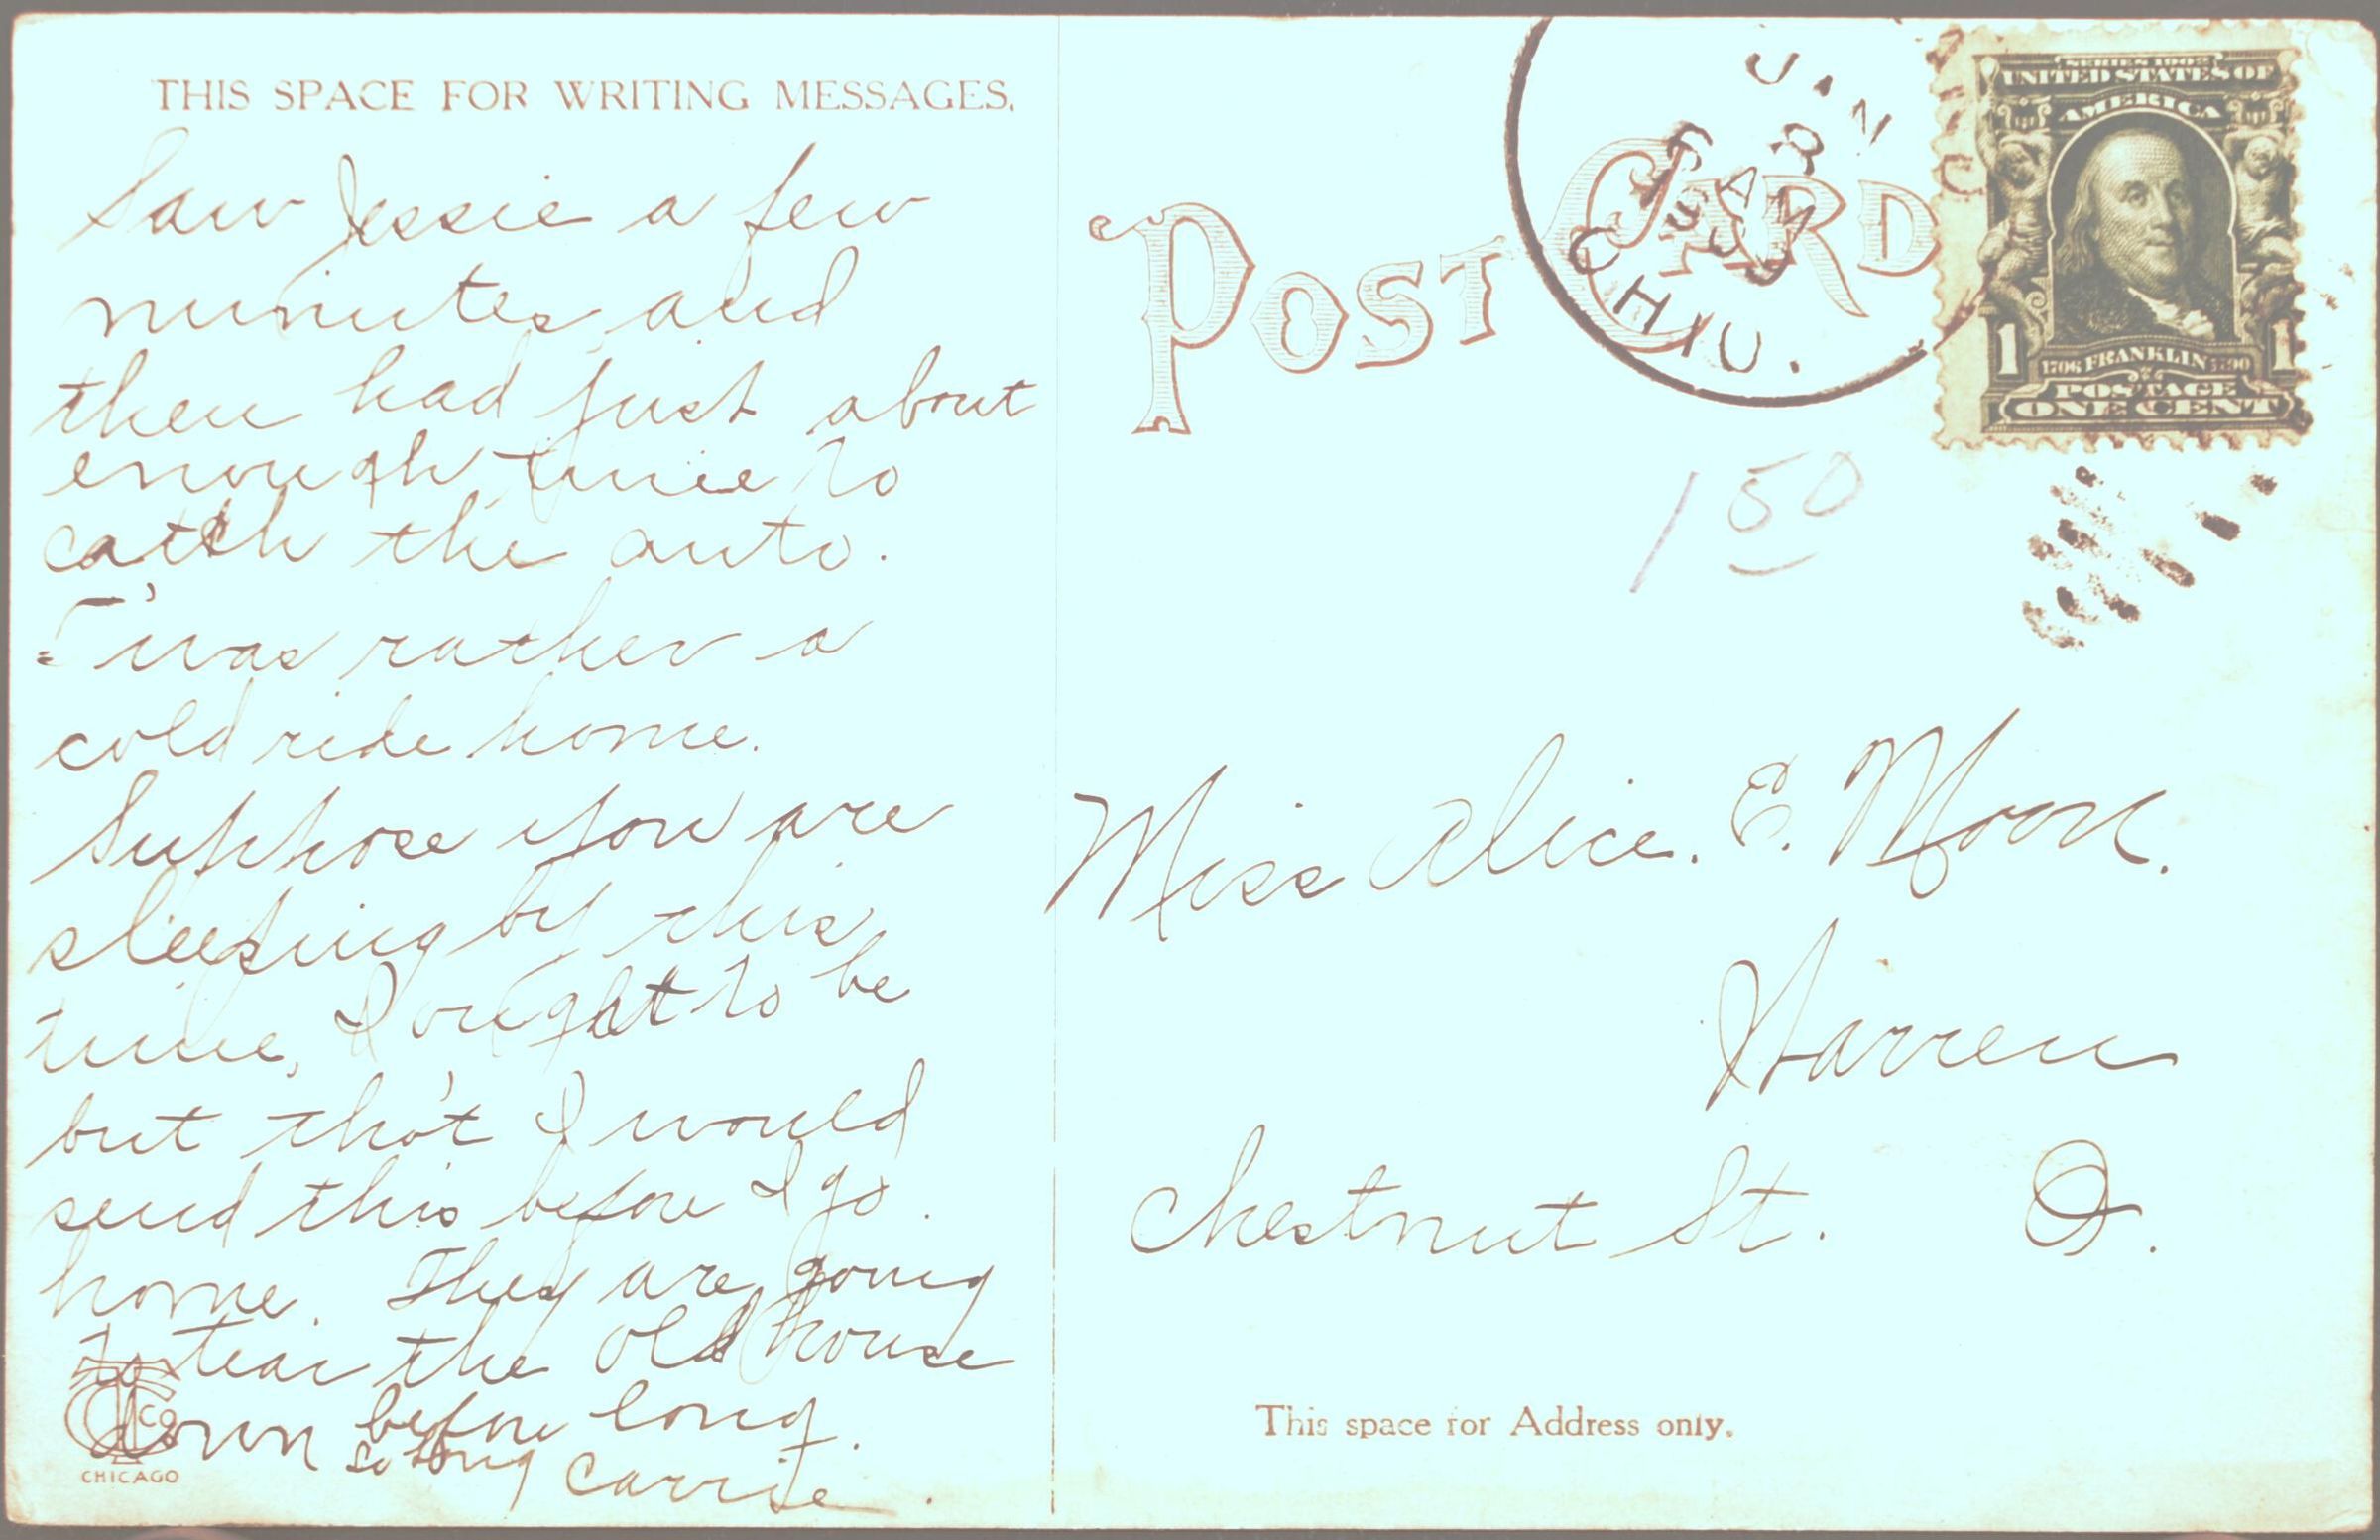 THIS SPACE FOR WRITING MESSAGES.
Saw Jessie a few
minutes and
then had just about
enough time to
catch the auto.
T'was rather a
cold ride home.
Suppose you are
sleeping by this
time, I ought to be
but tho't I would
send this before I go
home. They are going
to tear the old house
down before long.
so long Carrie.
CO
CHICAGO
POST CARD
JAN
8
OHIO.
SERIES 1902
UNITED STATES OF
AMERICA
1706 FRANKLIN 1790
1 1
POSTAGE
ONE CENT
1 50
Miss Alice. E. Moon.
Warren
Chestnut St. O.
This space for Address only.